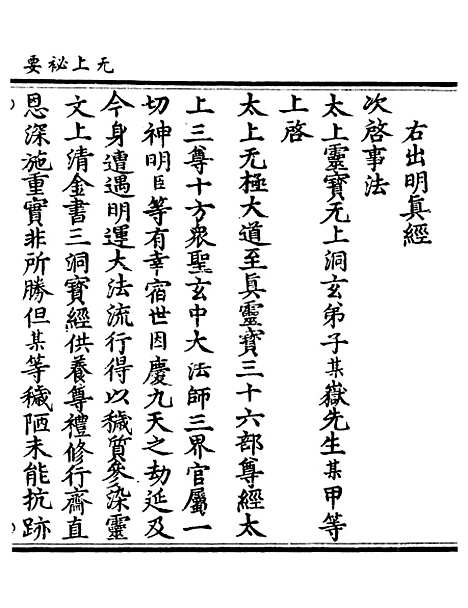 无上祕要
右出明真經
次啓事法
太上靈寶无上洞玄弟子某嶽先生某甲等
上啓
太上无極大道至真靈寶三十六部尊經太
上三尊十方衆聖玄中大法師三界官屬一
切神明臣等有幸宿世因慶九天之劫延及
今身遭遇明運大法流行得以穢質參染靈
文上清金書三洞寶經供養尊禮修行齋直
恩深施重實非所勝但某等穢陋未能抗跡